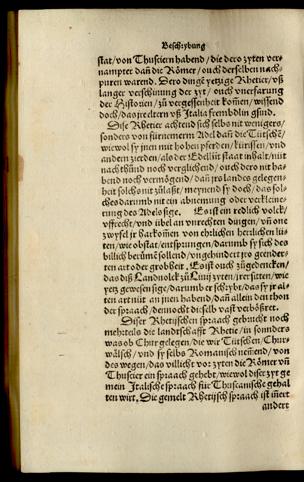 Beschrybung
stat/ von Thusciern habend/ die dero zyten ver-
nampter dañ die Römer/ ouch derselben nach-
puren warend. Dero dingē yetzige Rhetier/ vß
langer verschinung der zyt/ ouch vnerfarung
der Historien/ zů vergessenheit kom̄en/ wissend
doch/ das jr eltern vß Italia frembdlin gsind.
Dise Rhetier achtend sich selbs nit wenigers/
sonders von fürnemerm Adel dañ die Tütschē/
wiewol sy jnen mit hohen pferden/ kürissen/ vnd
andern zierden/ als der Edellüt staat inhalt/ nüt
nachthůnd noch verglichend/ ouch dero nit ha-
bend noch vermögend/ dañ jro landes gelegen-
heit solchs nit zůlaßt/ meynend sy doch/ das sol-
ches darumb nit ein abnemung oder verkleine-
rung des Adels sige. Es ist ein redlich volck/
vffrecht/ vnd übel an vnrechten dingen/ vñ one
zwyfel jr harkom̄en von ehrlichen herrlichen lü-
ten/ wie obstat/ entsprungen/ darumb sy sich des
billich berümē sollend/ vngehindert jro geender-
ten art oder grobheit. Es ist ouch zů gedencken/
das diß Landuolck zů Liuij zyten/ irer sitten/ wie
yetz gewesen sige/ darumb er schrybt/ das sy jr al-
ten art nüt an jnen habend/ dañ allein den thon
der spraach/ dennocht dieselb vast verbößret.
Diser Rhetijschen spraach gebrucht noch
mehrteils die landtschafft Rhetie/ in sonders
was ob Chur gelegen/ die wir Tütschen/ Chur-
wälsch/ vnd sy selbs Romanisch nem̄end/ von
des wegen/ das villicht vor zyten die Römer vñ
Thuscier ein spraach gehebt/ wiewol diser zyt ge
mein Italische spraach für Thuscanische gehal
ten wirt. Die gemelt Rhetijsch spraach ist im̄ert
andert